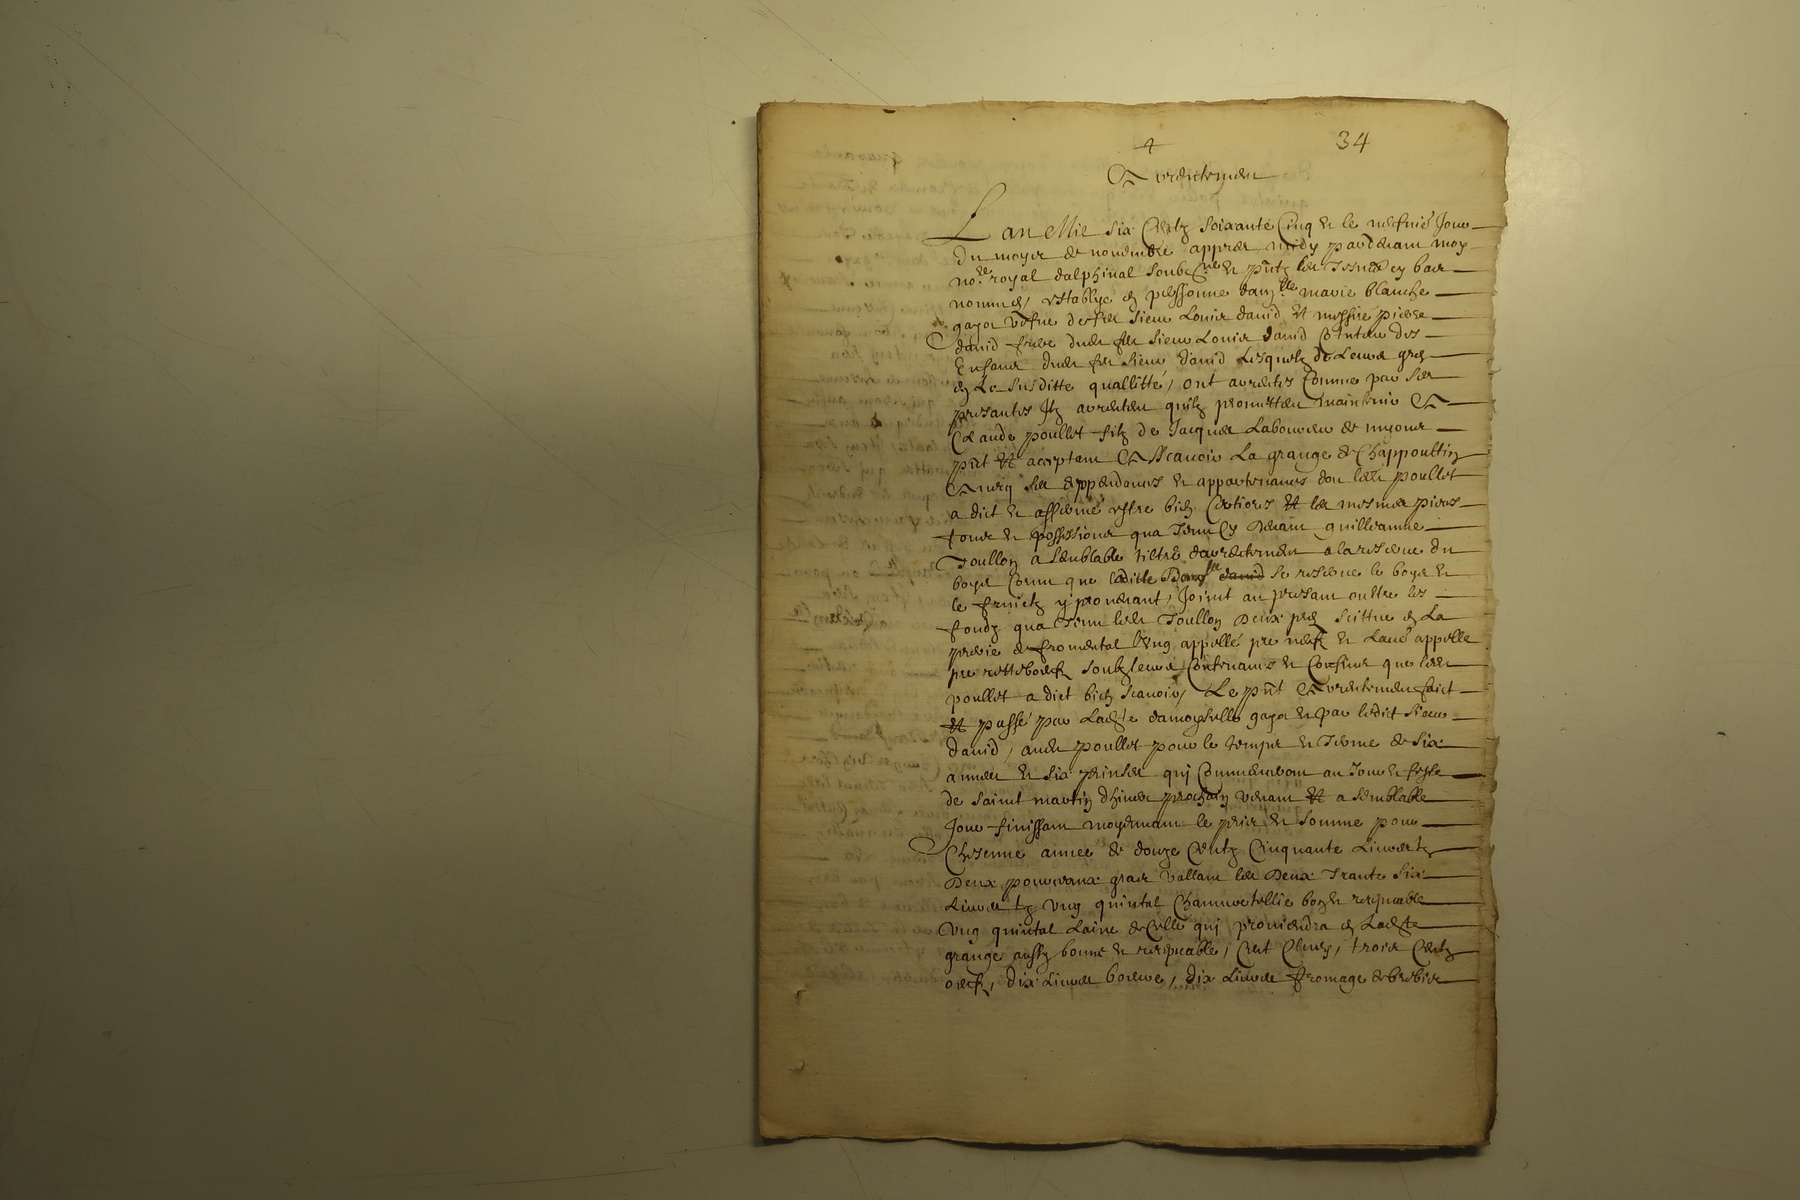 4
34
Arrentemen
Lan Mil six Centz soixante Cinq et le neufvie Jour
du moys de novembre appres midy par devant moy
nore royal dalphinal soubzne et pntz les tesmoins cy bas
nommes, establye en personne damlle marie blanche
gaya vefve de feu sieur Louis david et messire pierre
david frere dudit feu sieur Louis david et tuteur des
Enfans dudit feu sieur david Lesquelz de Leurs gres
en La susditte quallitté, ont arrentés Comme par ses
presantes Ilz arrenten quilz promettent maintenir A
Claude poullet filz de Jacques Laboureur de
pnt et aceptant A Scavoir La grange de Chappoultin
Avecq ses deppendances et appartenances don ledit poullet
a dict et affirmé estre bien Certiores et les mesmes pieces
terres et possessions qua tenu Cy devant guilleaume
Toullon a semblable tiltre darrentement a la reserve du
boys Comme que laditte Damlle david se reserve le boys et
le fruictz y provenant, Joinct au presant oultre les
fondz qua tenu ledit Toullon Deux pres scittue en La
prerie de fromental L'ung appellé pre neuf et Laue appelle
pre soubz leurs Contenances et Confins que ledit
poullet a dict bien scavoir, Le pnt Arrentement faict
et passé par Ladte damoyselle gaya et par ledict sieur
david, audit poullet pour le temps et Terme de six
annees et six prinses qui Commenceront au Jour et feste
de saint martin dhiver prochain venant et a semblable
Jour finissant moyennant le prix et somme pour
Chesenne annee de douze Centz Cinquante Livres tz
Deux pourceaux gras vallant les Deux Trante six
Livres tz ung quintal Chanvre bon et resepvable
ung quintal Laine de Celle qui proviendra en Ladte
grange aussy bonne et resepvable, Cent Clouys, trois Centz
oeufz, dix Livres beurre, dix Livres fromage de brebis